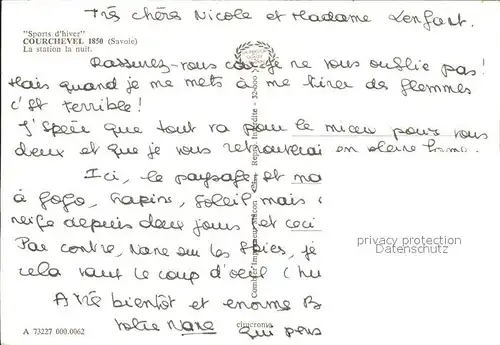 Très chère Nicole et Madame Lenfant.
"Sports d'hiver"
COURCHEVEL 1850 (Savoie)
La station la nuit.
Rassurez-vous car je ne vous oublie pas!
Mais quand je me mets à me tirer des flemmes
c'est terrible!
J'espère que tout va pour le mieux pour vous
deux et que je vous retrouverai en pleine forme.
Ici, le paysage est
à gogo, sapins, soleil mais
neige depuis deux jours et ceci
Par contre, Nane sur les skies, je
cela vaut le coup d'oeil (hu
A très bientôt et enorme B
Votre Nane qui pens
privacy protection
Datenschutz
A 73227 000.0062
cimcrome
Combier Imprimeur Mâcon
Repro. Interdite -